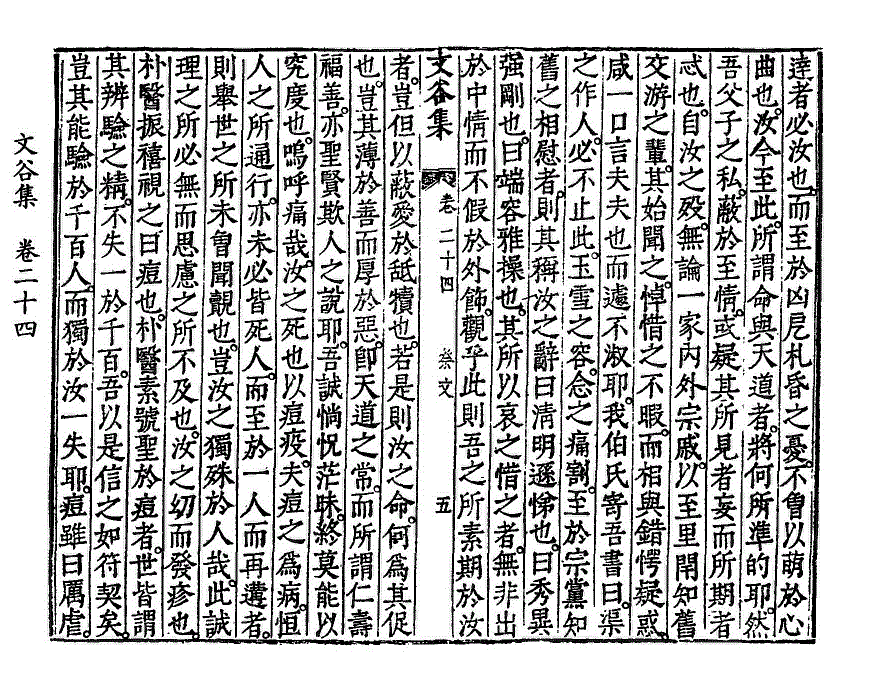 達者必汝也。而至於凶戹札昏之憂。不曾以萌於心
曲也。汝今至此。所謂命與天道者。將何所準的耶。然
吾父子之私。蔽於至情。或疑其所見者妄而所期者
忒也。自汝之歿。無論一家內外宗戚。以至里閈知舊
交游之輩。其始聞之。悼惜之不暇。而相與錯愕疑惑。
咸一口言夫夫也而遽不淑耶。我伯氏寄吾書曰。渠
之作人。必不止此。玉雪之容。念之痛割。至於宗黨知
舊之相慰者。則其稱汝之辭曰淸明遜悌也。曰秀異
强剛也。曰端容雅操也。其所以哀之惜之者。無非出
於中情而不假於外飾。觀乎此則吾之所素期於汝
文谷集 卷二十四 祭文 五
者。豈但以蔽愛於舐犢也。若是則汝之命。何爲其促
也。豈其薄於善而厚於惡。卽天道之常。而所謂仁壽
福善。亦聖賢欺人之說耶。吾誠惝怳茫昧。終莫能以
究度也。嗚呼痛哉。汝之死也以痘疫。夫痘之爲病。恒
人之所通行。亦未必皆死人。而至於一人而再遘者。
則擧世之所未曾聞覩也。豈汝之獨殊於人哉。此誠
理之所必無而思慮之所不及也。汝之幼而發疹也。
朴醫振禧視之曰痘也。朴醫素號聖於痘者。世皆謂
其辨驗之精。不失一於千百。吾以是信之如符契矣。
豈其能驗於千百人。而獨於汝一失耶。痘雖曰厲虐。
文谷集 卷二十四